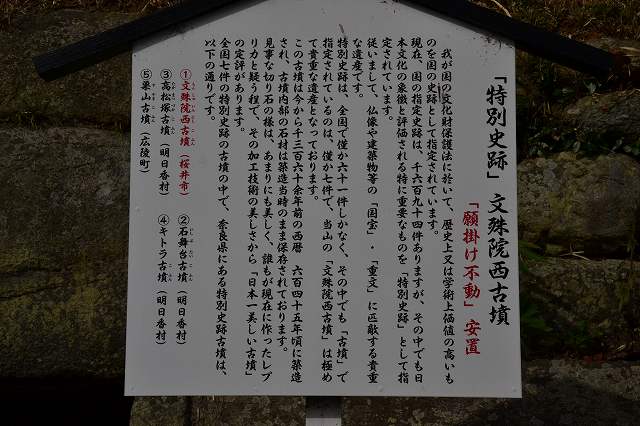 「特別史跡」文殊院西古墳
「願掛け不動」安置
我が国の文化財保護法に於いて、歴史上又は学術上価値の高いも
のを国の史跡として指定されています。
現在、国の指定史跡は、千六百九十四件ありますが、その中でも日
本文化の象徴と評価される特に重要なものを「特別史跡」として指
定されています。
従いまして、仏像や建築物等の「国宝」・「重文」に匹敵する貴重
な遺産です。
特別史跡は、全国で僅か六十一件しかなく、その中でも「古墳」で
指定されているのは、僅か七件で、当山の「文殊院西古墳」は極め
て貴重な遺産となっております。
この古墳は今から千三百六十余年前の西暦 六百四十五年頃に築造
され、古墳内部の石材は築造当時のまま保存されております。
見事な切り石の様は、あまりにも美しく、誰もが現在に作ったレプ
リカと疑う程で、その加工技術の美しさから「日本一美しい古墳」
の定評があります。
全国七件の特別史跡の古墳の中で、奈良県にある特別史跡古墳は、
以下の通りです。
①文殊院西古墳（桜井市）
②石舞台古墳（明日香村）
③高松塚古墳（明日香村）
④キトラ古墳（明日香村）
⑤巣山古墳（広陵町）